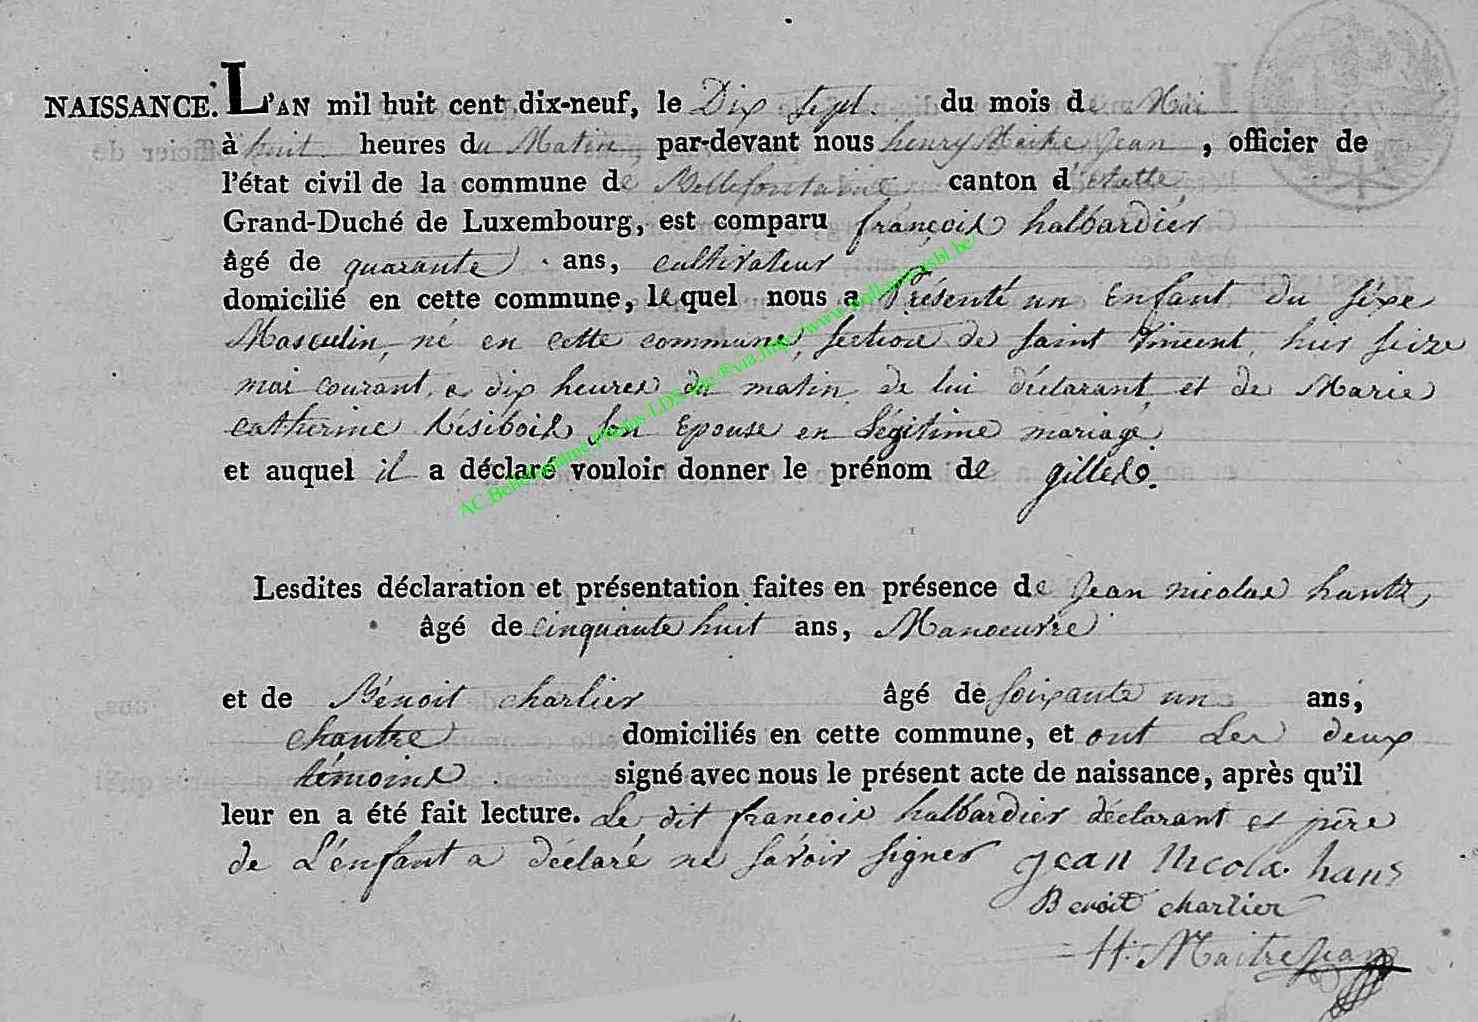 NAISSANCE. L'AN mil huit cent dix-neuf, le Dix Sept. du mois de Mai
à huit heures du Matin par-devant nous henry Maitre Jean, officier de
l'état civil de la commune de Bellefontaine canton d'étalle
Grand-Duché de Luxembourg, est comparu françois halbardier
âgé de quarante ans, cultivateur
domicilié en cette commune, lequel nous a Présenté un Enfant du sexe
Masculin, né en cette commune, section de saint vincent, hier seize
mai courant, a dix heures du matin, de lui déclarant et de Marie
catherine Résibois son Epouse en Légitime mariage
et auquel il a déclaré vouloir donner le prénom de gilles.
Lesdites déclaration et présentation faites en présence de Jean nicolas
âgé de cinquante huit ans, Manoeuvre
et de Bénoit charlier âgé de soixante un ans,
chantre domiciliés en cette commune, et ont Les deux
témoins signé avec nous le présent acte de naissance, après qu'il
leur en a été fait lecture. Le dit francois halbardier déclarant et père
de L'enfant a déclaré ne savoir signer Jean Nicola. hans
Benoit charlier
H. Maitrejean
AC Bellefontaine